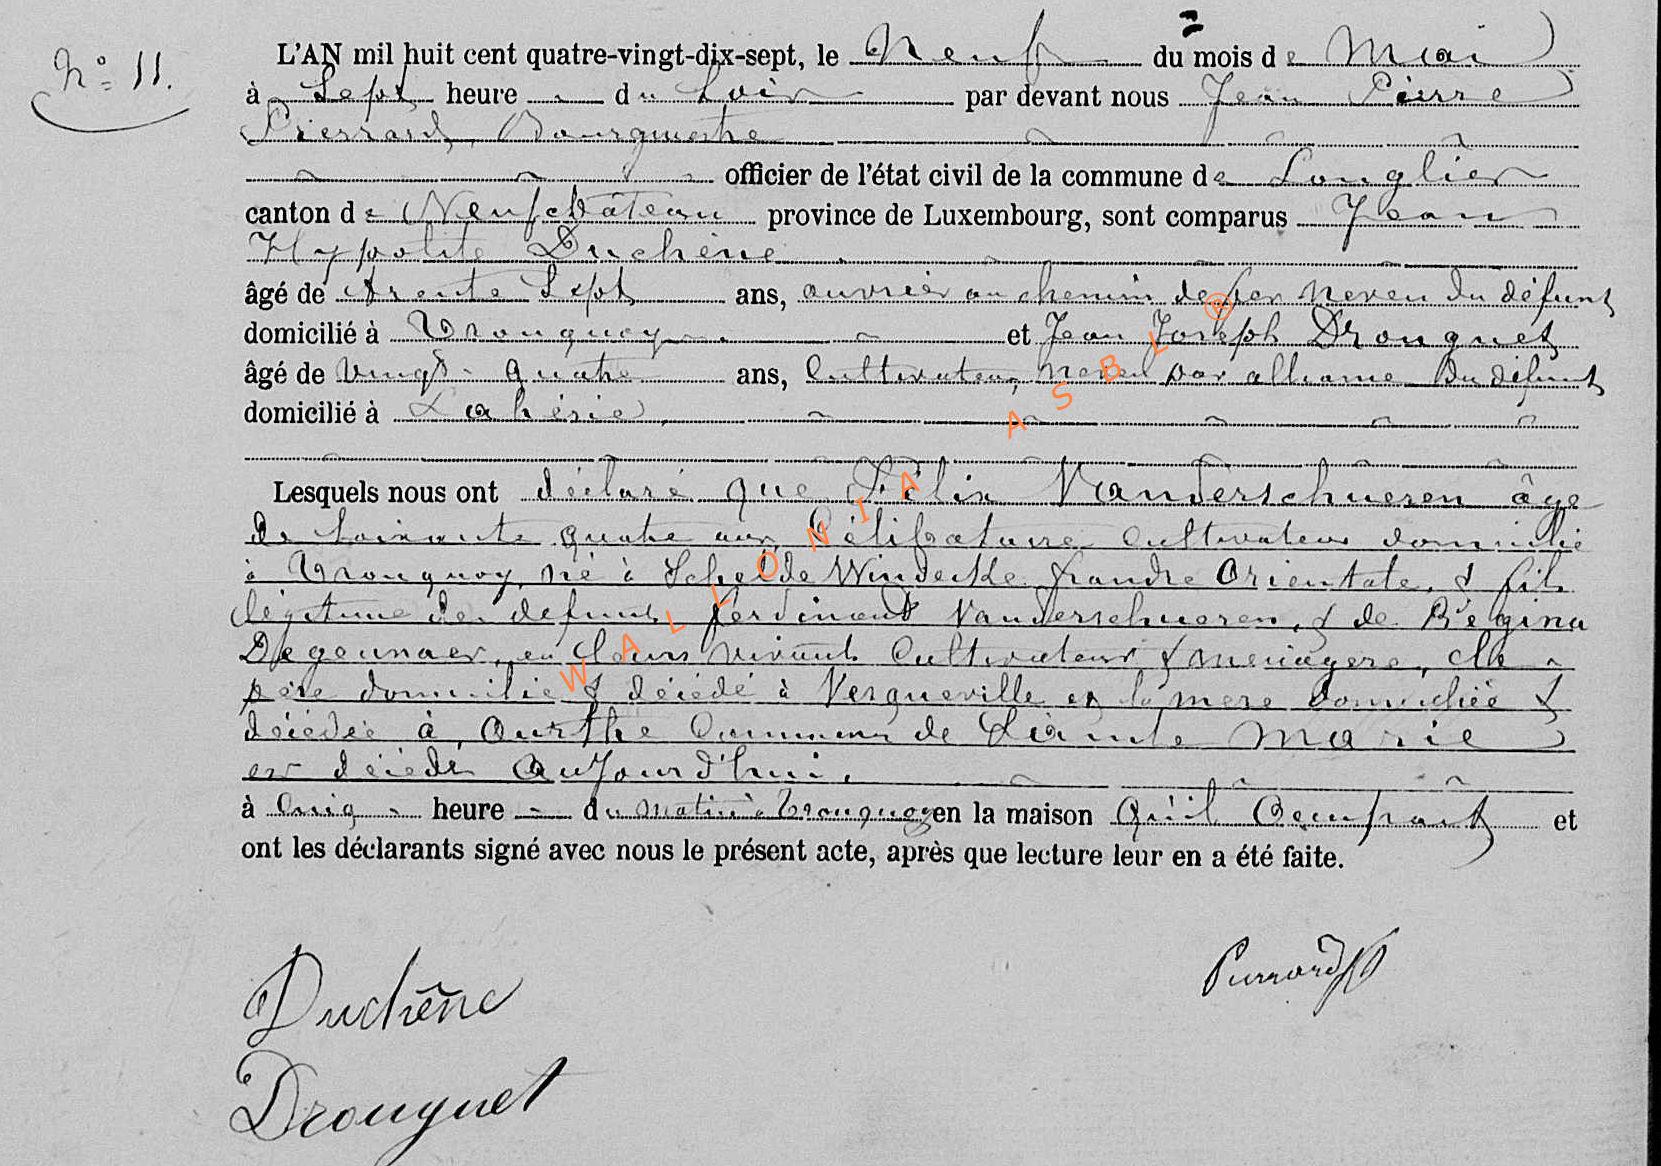 N° 11.
L'AN mil huit cent quatre-vingt-dix-sept, le Neuf du mois de Mai
à Sept heure du Soir par devant nous Jean Pierre
Pierrard, Bourgmestre
officier de l'état civil de la commune de Longlier
canton de Neufchâteau province de Luxembourg, sont comparus Jean
Hypolite Duchêne
âgé de trente Sept ans, ouvrier au chemin de fer neveu du défunt
domicilié à Tronquoy et Jean Joseph Drouguet
âgé de vingt quatre ans, Cultivateur, neveu par alliance du défunt
domicilié à Lahérie
Lesquels nous ont déclaré que Félix Vanderschueren âge
de Soixante quatre ans Célibataire Cultivateur domicilié
à Tronquoy, né à Schelde Windeke flandre Orientale, & fils
légitime des defunts ferdinand Vanderschueren, & de Régina
Degeunaer, en leurs vivants Cultivateur & menagère, le
père domicilié & décédé à Vesqueville et la mère domiciliée &
décédée à Ourthe Commune de Sainte Marie
est décédé aujourd'hui,
à Cinq heure du matin à Tronquoy en la maison Qu'il Occupait et
ont les déclarants signé avec nous le présent acte, après que lecture leur en a été faite.
Duchêne
Pierrard
Drouguet
WALLONIA ASBL ®